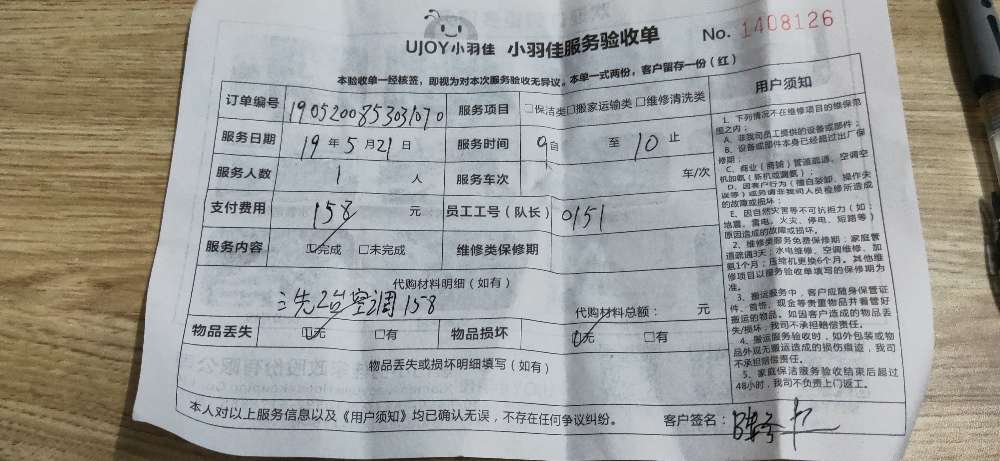 UJOY小羽佳 小羽佳服务验收单 No. 1408126
本验收单一经核签，即视为对本次服务验收无异议。本单一式两份，客户留存一份（红）
订单编号 1905200853031070 服务项目 □保洁类□搬家运输类 □维修清洗类
服务日期 19 年 5 月 21 日 服务时间 9 自 至 10 止
服务人数 1 人 服务车次 车/次
支付费用 158 元 员工工号（队长） 0151
服务内容 □完成 □未完成 维修类保修期
代购材料明细（如有）
洗2台空调158
代购材料总额： 元
物品丢失 □无 □有 物品损坏 □无 □有
物品丢失或损坏明细填写（如有）
本人对以上服务信息以及《用户须知》均已确认无误，不存在任何争议纠纷。 客户签名：
用户须知
1、下列情况不在维修项目的维保范
围之内：
A、非我司员工提供的设备或部件；
B、设备或部件本身已经超过出厂保
修期；
C、商业（商铺）管道疏通、空调空
机加氨（新机或漏氨）；
D、因客户行为（擅自装卸、操作失
误等）或另请非我司人员检修所造成
的故障或损坏；
E、因自然灾害等不可抗拒力（如：
地震、雷电、火灾、停电、短路等）
原因造成的故障或损坏。
2、维修类服务免费保修期：家庭管
道疏通3天；水电维修、空调维修、加
氨1个月；压缩机更换6个月。其他维
修项目以服务验收单填写的保修期为
准。
3、搬运服务中，客户应随身保管证
件、首饰、现金等贵重物品并看管好
搬运的物品。如因客户造成的物品丢
失/损坏，我司不承担赔偿责任。
4、搬运服务验收时，如外包装或物
品外观无搬运造成的损伤痕迹，我司
不承担赔偿责任。
5、家庭保洁服务验收结束后超过
48小时，我司不负责上门返工。